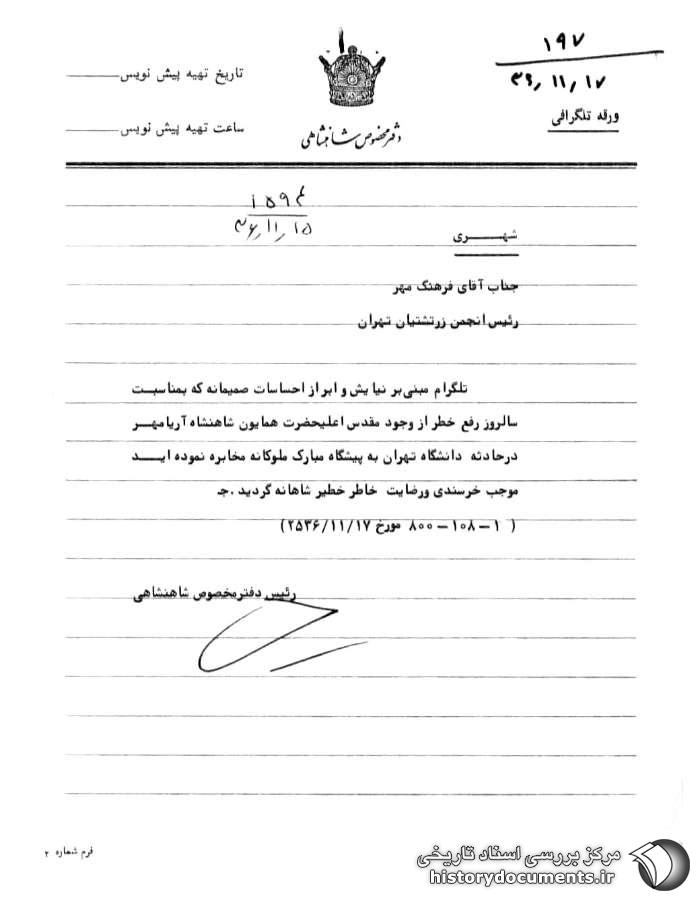 ۱۹۷
۳۶٫۱۱٫۱۷
ورقه تلگرافی
دفتر مخصوص شاهنشاهی
تاریخ تهیه پیش نویس
ساعت تهیه پیش نویس
۳۶٫۱۱٫۱۵
شهری
جناب آقای فرهنگ مهر
رئیس انجمن زرتشتیان تهران
تلگرام مبنی بر نیایش و ابراز احساسات صمیمانه که بمناسبت
سالروز رفع خطر از وجود مقدس اعلیحضرت همایون شاهنشاه آریامهر
درحادثه دانشگاه تهران به پیشگاه مبارک ملوکانه مخابره نموده اید
موجب خرسندی ورضایت خاطر خطیر شاهانه گردید .ج
( ۱ – ۱۰۸ – ۸۰۰ مورخ ۲۵۳۶/۱۱/۱۷)
رئیس دفتر مخصوص شاهنشاهی
فرم شماره ۲
مرکز بررسی اسناد تاریخی
historydocuments.ir